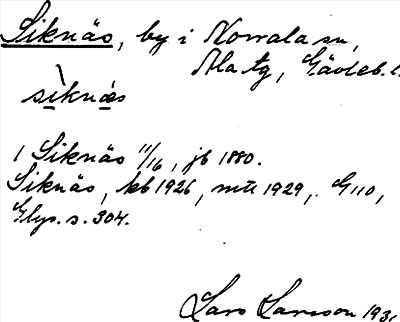 Siknäs, by i Norrala sn,
Ala tg, Gävleb. l.
siknäs
1 Siknäs 11/16, jb 1880.
Siknäs, kb 1926, mtl 1929, G110,
Glys. s. 304.
Lars Larsson 1931